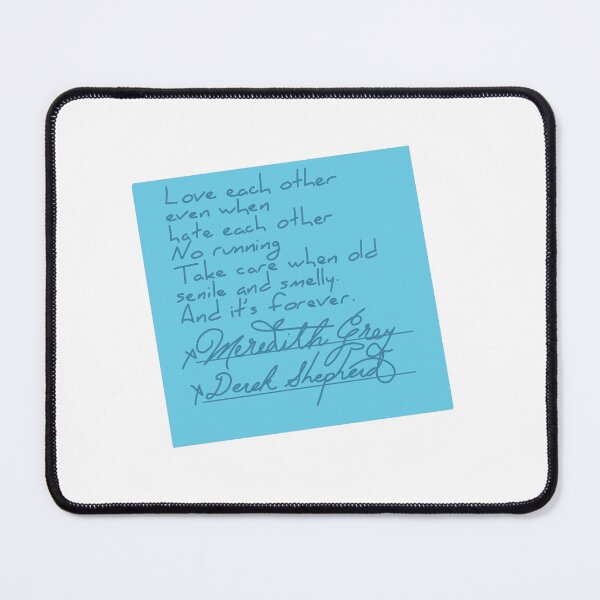 Love each other
even when
hate each other
No running
Take care when old
senile and smelly.
And it's forever.
x Meredith Grey
x Derek Shepherd